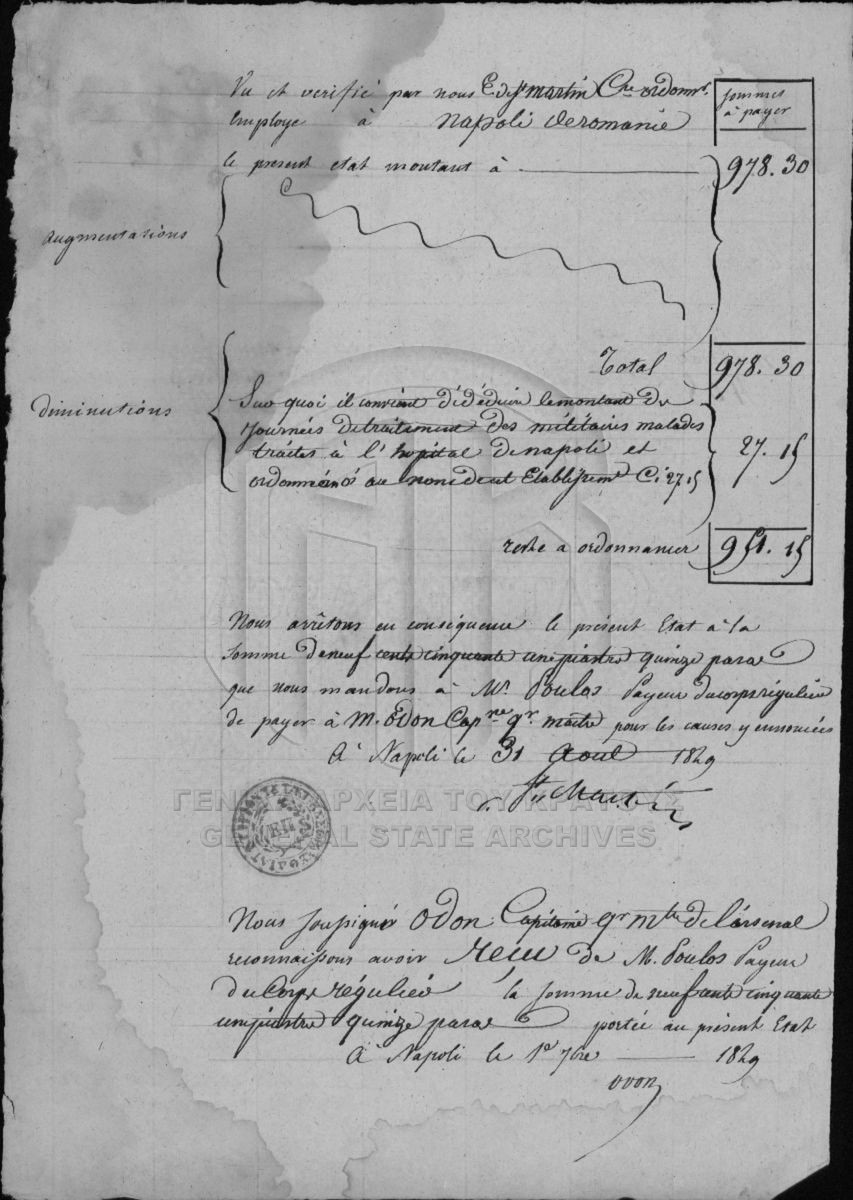 Vu et verifié par nous E de St martin Cre ordonnr.
Employe à Napoli deromanie
sommes
à payer
le présent etat montant à 978.30
augmentations
Total 978.30
Diminutions
Sur quoi il convient d'édéduire lemontant de
journées detraitement des militaires malades
traités à l'hopital denapoli et 27.15
ordonnéncé au nom dedt Etablissemt Ci 27.15
reste a ordonnancer 951.15
Nous arrêtons en conséquence le présent Etat à la
somme deneuf cents cinquante une piastres quinze paras
que nous mandons à Mr. Poulos Payeur ducorps régulier
de payer à m. Odon Capne qr. maitre pour les causes y ennoncées
à Napoli le 31 Aout 1829
St. Martin
ΓΕΝΙΚΑ ΑΡΧΕΙΑ ΤΟΥ ΚΡΑΤΟΥΣ
GENERAL STATE ARCHIVES
Nous soussigné Odon Capitaine qr mtre de l'arsenal
reconnaissons avoir réçu de M. Poulos Payeur
du Corps régulier la somme de neuf cents cinquante
une piastres quinze paras portée au présent Etat
à Napoli le 1er 7bre 1829
Odon